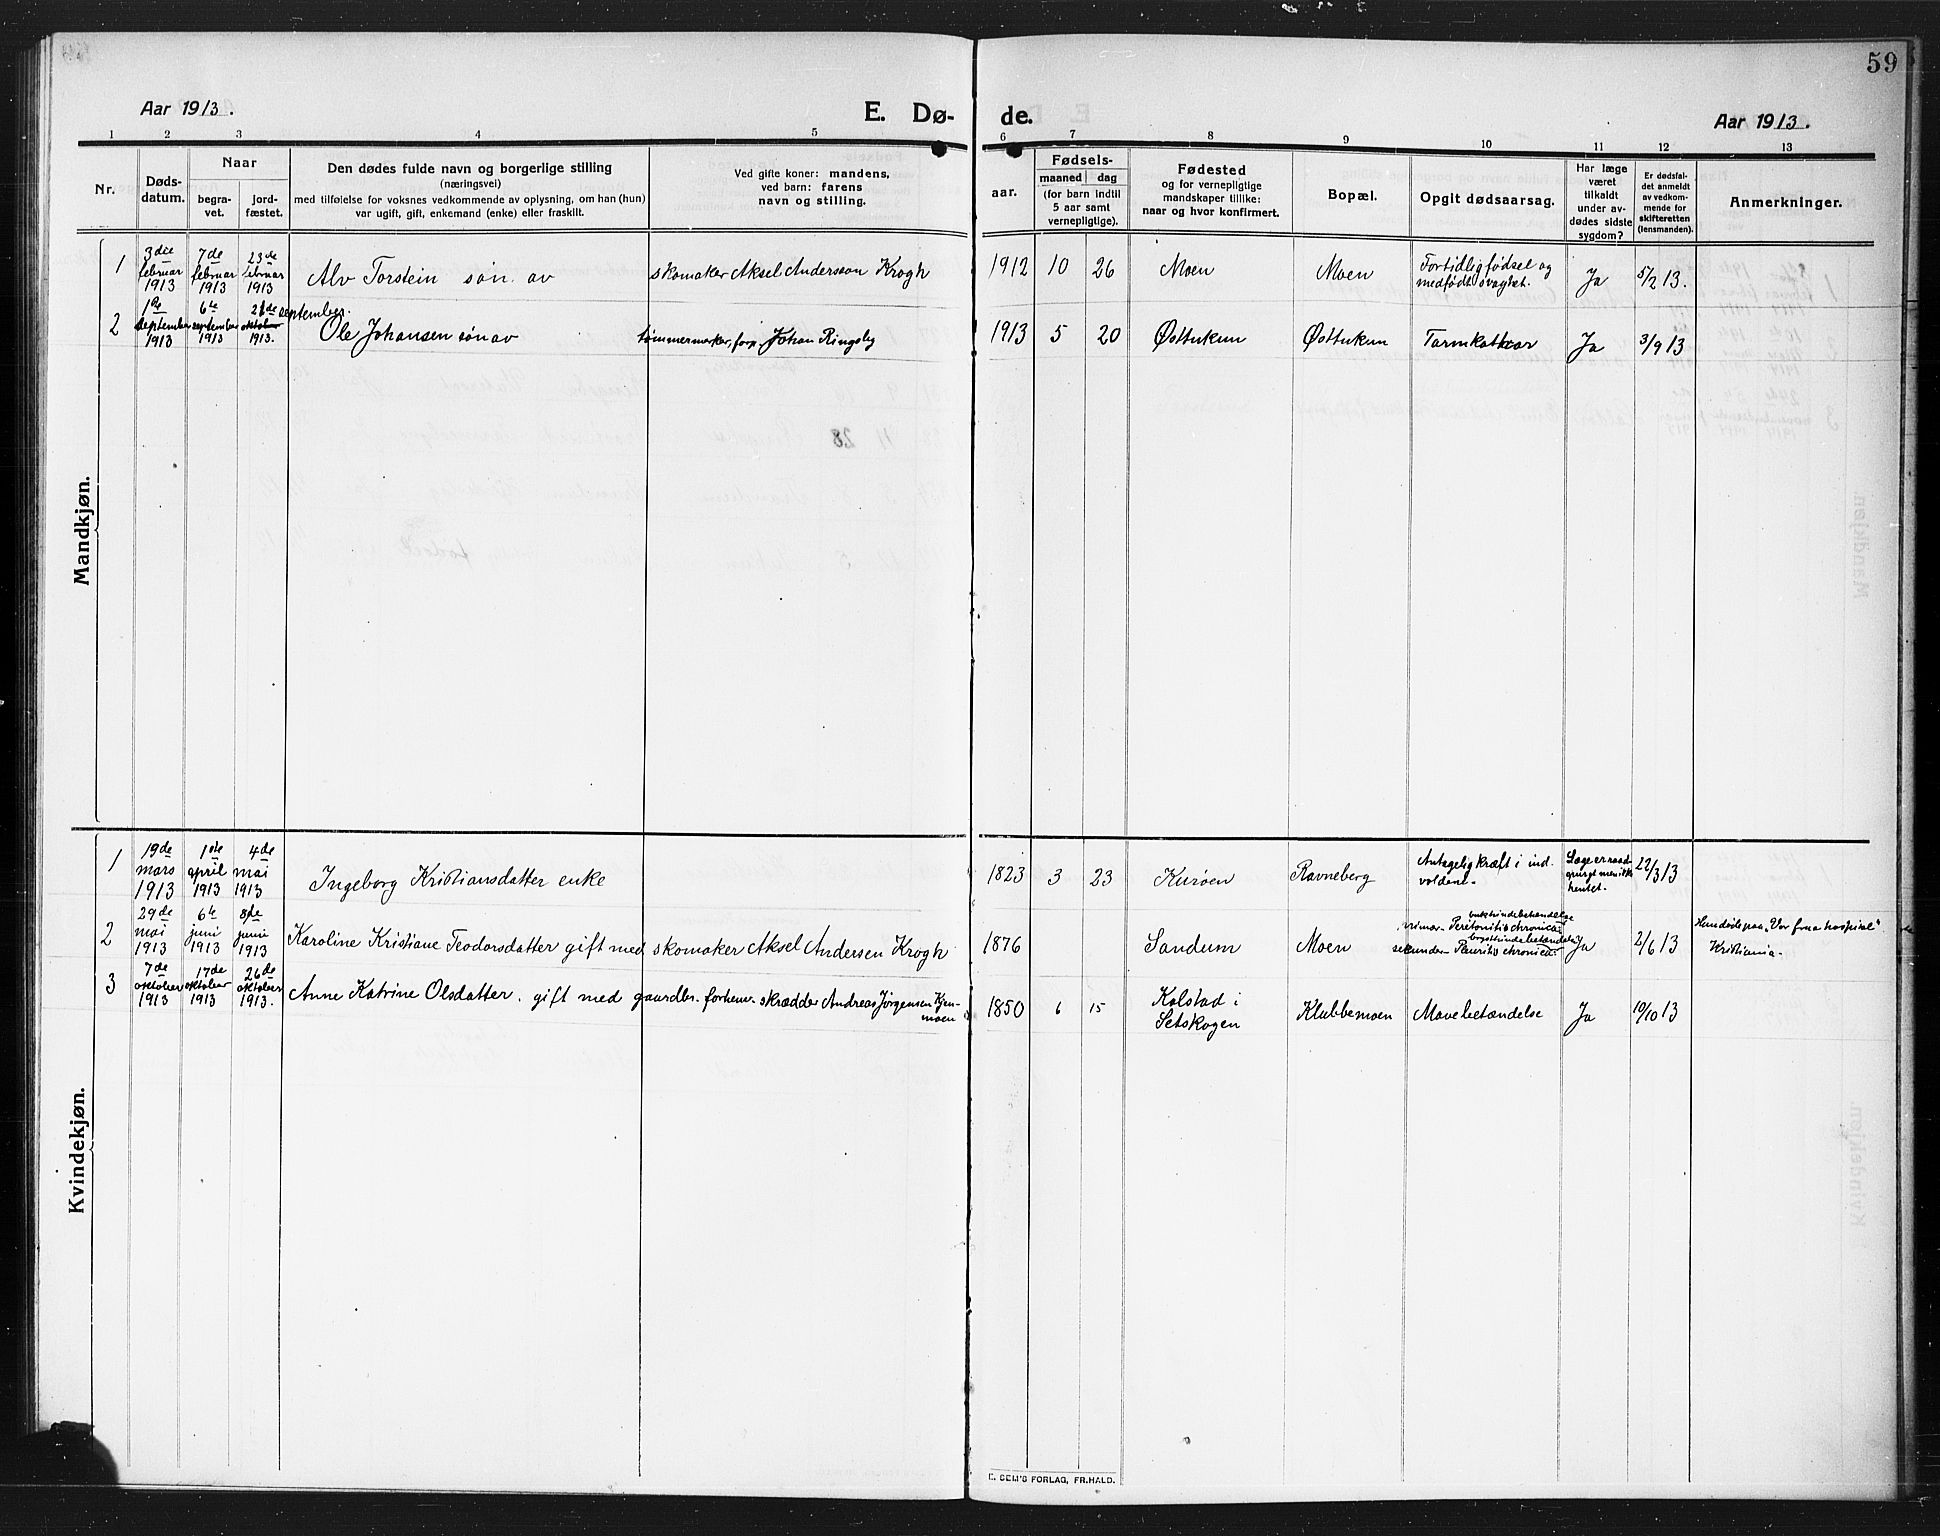 59
Aar 1913.
E. Dø- de.
Aar 1913.
1 2 3 4 5 6 7 8 9 10 11 12 13
Nr.
Døds-
datum.
Naar
begra-
vet.
jord-
fæstet.
Den dødes fulde navn og borgerlige stilling
(næringsvei)
med tilføielse for voksnes vedkommende av oplysning, om han (hun)
var ugift, gift, enkemand (enke) eller fraskilt.
Ved gifte koner: mandens,
ved barn: farens
navn og stilling.
aar.
Fødsels-
maaned dag
(for barn indtil
5 aar samt
vernepligtige).
Fødested
og for vernepligtige
mandskaper tillike:
naar og hvor konfirmert.
Bopæl.
Opgit dødsaarsag.
Har læge
været
tilkaldt
under av-
dødes sidste
sygdom?
Er dødsfal-
det anmeldt
av vedkom-
mende for
skifteretten
(lensmanden).
Anmerkninger.
Mandkjøn.
1
3die
februar
1913
7de
februar
1913
23de
februar
1913
Alv Torstein søn av
skomaker Aksel Anderssøn Krogh
1912 10 26
Moen
Moen
Fortidlig fødsel og
medfødt svaghet.
Ja
5/2 13.
2
1ste
september
1913
6te
september
1913
21de september.
oktober
1913.
Ole Johansen søn av
tømmermerker, forp. Johan Ringsby
1913 5 20
Østtukun
Østtukun
Tarmkathar
Ja
3/9 13
Kvindekjøn.
1
19de
mars
1913
1ste
april
1913
4de
mai
1913
Ingeborg Kristiansdatter enke
1823 3 23
Kurøen
Ravneberg
Antagelig kræft i ind-
voldene.
Læge er raad-
spurgt men ikke
hentet.
22/3 13
2
29de
mai
1913
6te
juni
1913
8de
juni
1913
Karoline Kristiane Teodorsdatter gift med
skomaker Aksel Andersen Krogh
1876
Sandum
Moen
bukhindebetændelse
primær Peritonitis chronica:
brysthindebetændelse
sekundær Pleuritis chronica:
Ja
2/6 13
Hun døde paa "Vor frua hospital"
Kristiania.
3
7de
oktober
1913
17de
oktober
1913
26de
oktober
1913.
Anne Katrine Olsdatter. gift med
gaardbr. forhenv. skrædder Andreas Jørgensen Kjen-
moen
1850 6 15
Kolstad i
Setskogen
Klubbemoen
Mavebetændelse
Ja
10/10 13
E. SEM'S FORLAG, FR.HALD.